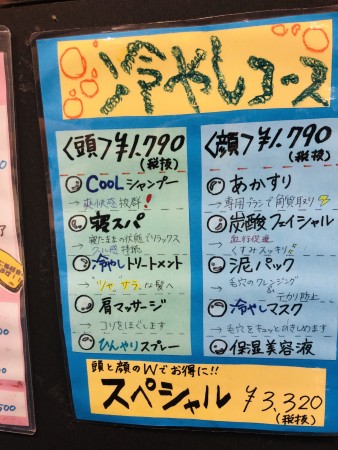 冷やしコース
〈頭〉¥1.790
(税抜)
COOLシャンプー
→爽快感抜群!
寝スパ
寝たままの状態でリラックス
クール感持続
冷やしトリートメント
→"ツヤ" "サラ"な髪へ
肩マッサージ
→コリをほぐします
ひんやりスプレー
〈顔〉¥1.790
(税抜)
あかすり
→専用ブラシで角質取り
炭酸フェイシャル
血行促進
くすみスッキリ
泥パック
→毛穴のクレンジング
&
テカリ防止
冷やしマスク
→毛穴をキュッとひきしめます
保湿美容液
頭と顔のWでお得に!!
スペシャル ¥3,320
(税抜)